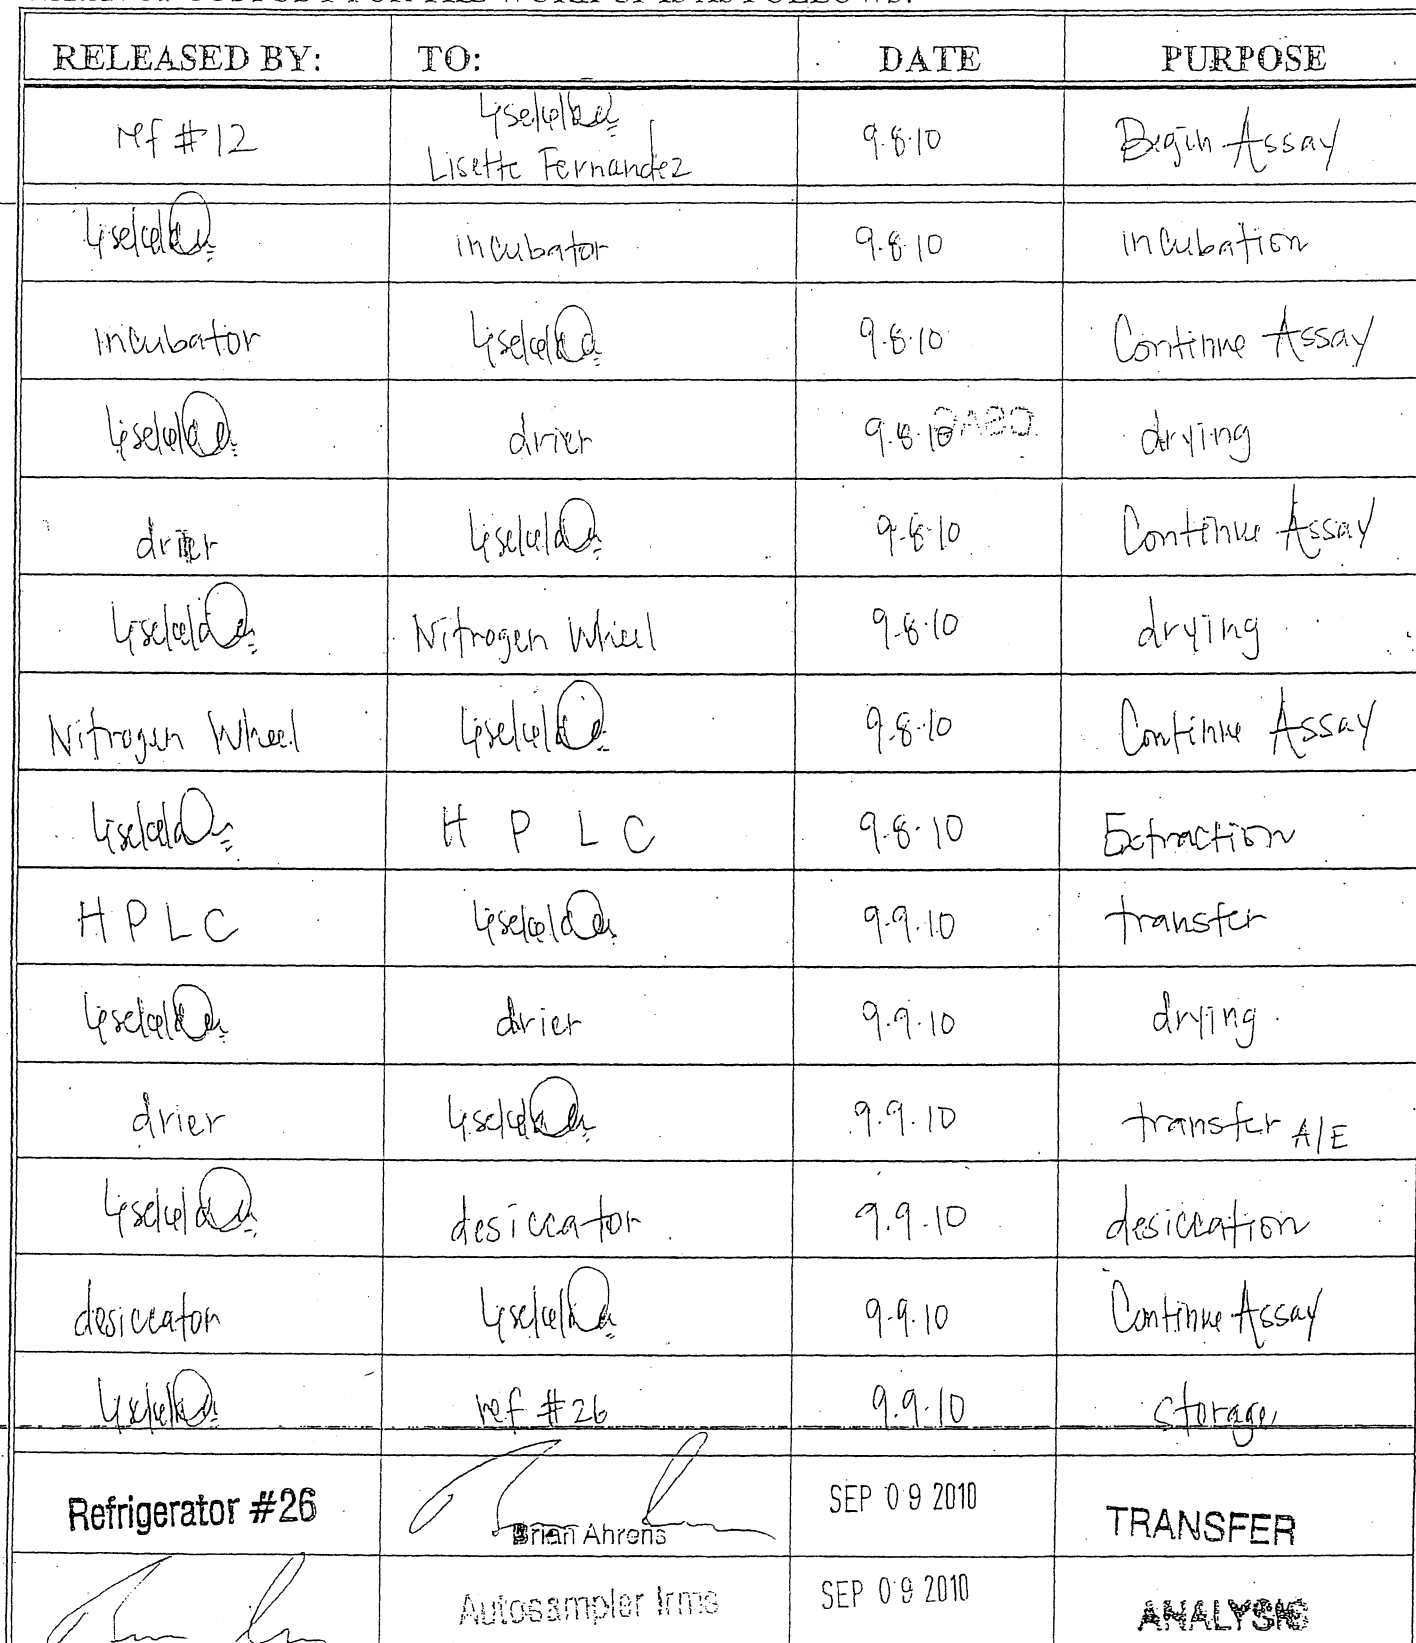 RELEASED BY: TO: DATE PURPOSE
ref #12 9.8.10 Begin Assay
Lisette Fernandez
incubator 9.8.10 incubation
incubator 9.8.10 Continue Assay
drier 9.8.10 drying
drier 9.8.10 Continue Assay
Nitrogen Wheel 9.8.10 drying
Nitrogen Wheel 9.8.10 Continue Assay
H P L C 9.8.10 Extraction
H P L C 9.9.10 transfer
drier 9.9.10 drying
drier 9.9.10 transfer A/E
desiccator 9.9.10 desiccation
desiccator 9.9.10 Continue Assay
ref #26 9.9.10 storage
Refrigerator #26 Brian Ahrens SEP 09 2010 TRANSFER
Autosampler Irms SEP 09 2010 ANALYSIS